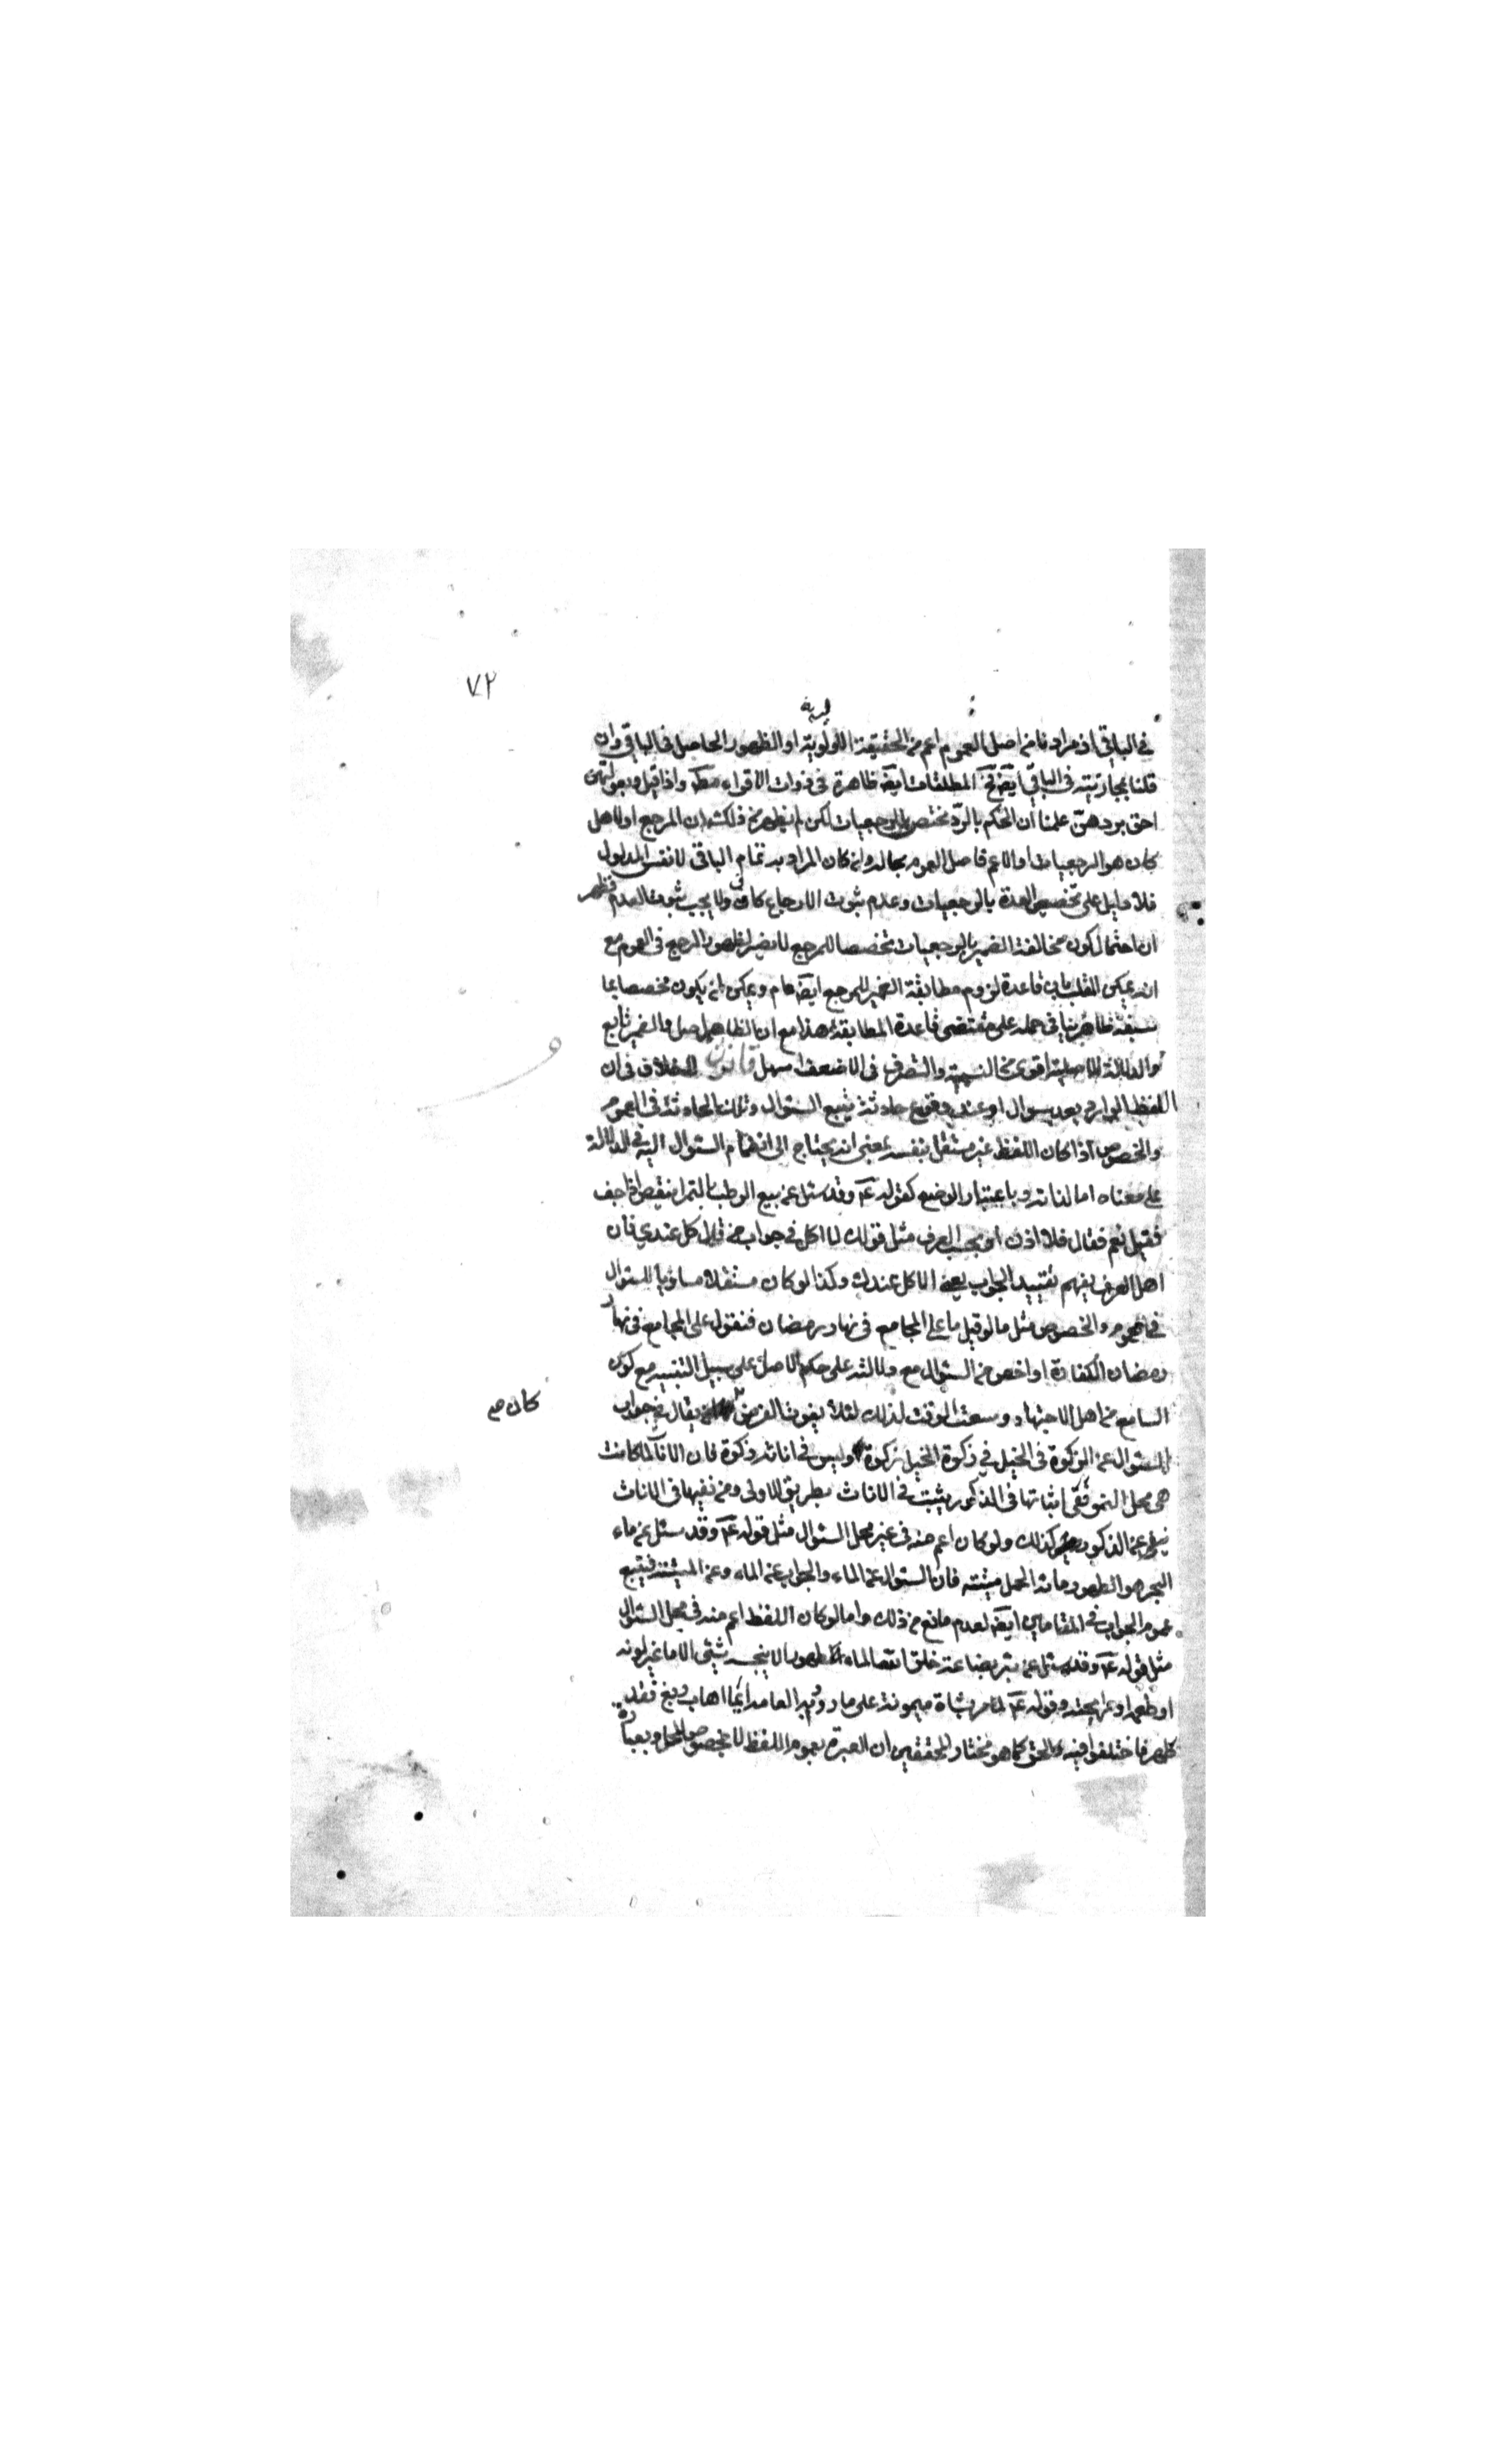 ٧٢
في الباقي اذ مرادنا من اصل العموم اعم من الحقيقة الاولوية او الظهور الحاصل في الباقي وان
قلنا بمجازيته في الباقي ايضا المطلقات ايضا ظاهرة في ذوات الاقراء واذا قيل وبعولتهن
احق بردهن علمنا ان الحكم بالرد مختص بالرجعيات لكن لم يظهر من ذلك ان المرجع اولا هل
كان هو الرجعيات او الاعم فاصل العموم بحاله وان كان المراد به تمام الباقي لا نفس المدلول
فلا دليل على تخصيص العدة بالرجعيات وعدم ثبوت الارجاع كاف ولا يجب ثبوت العدم فظهر
ان احتمال كون مخالفة الضمير بالرجعيات تخصصا للمرجع لا يضر لظهور المرجع في العموم مع
انه يمكن القلب بان قاعدة لزوم مطابقة الضمير للمرجع ايضا عام ويمكن ان يكون مخصصا بما
سبقه ظاهر ينافي حمله على مقتضى قاعدة المطابقة هذا مع ان الظاهر اصل والضمير تابع
والدلالة الاصلية اقوى من التبعية والتصرف في الاضعف اسهل قانون لا خلاف في ان
اللفظ الوارد بعد سوال او عند وقوع حادثة يتبع السئوال وتلك الحادثة في العموم
والخصوص اذا كان اللفظ غير مستقل بنفسه بمعنى انه يحتاج الى انضمام السئوال اليه في الدلالة
على معناه اما لذاته وباعتبار الوضع كقوله ع وقد سئل عن بيع الرطب بالتمر اينقص اذا جف
فقيل نعم فقال فلا اذن او بحسب العرف مثل قولك لا اكل في جواب من قال كل عندي فان
اهل العرف يفهم تقييد الجواب يعني لا اكل عندك وكذا لو كان مستقلا مساويا للسئوال
في العموم والخصوص مثل ما لو قيل ما على المجامع في نهار رمضان فنقول على المجامع في نهار
رمضان الكفارة او اخص من السئوال مع دلالته على حكم الاصل على سبيل التنبيه مع كون
السامع من اهل الاجتهاد وسعة الوقت لذلك لئلا يفوت الغرض يقال في جواب
كان صح
السئوال عن الزكوة في الخيل في ذكور الخيل زكوة وليس في اناثه زكوة فان الاناث لما كانت
هي محل النمو ففي اثباتها في الذكور يثبت في الاناث بطريق الاولى ومن نفيها في الاناث
ينفى عن الذكور كذلك ولو كان اعم منه في غير محل السئوال مثل قوله ع وقد سئل عن ماء
البحر هو الطهور مائه الحل ميتته فان السئوال عن الماء والجواب عن الماء وعن الميتة فيتبع
عموم الجواب في المقامين ايضا لعدم مانع من ذلك واما لو كان اللفظ اعم منه في محل السئوال
مثل قوله ع وقد سئل عن بئر بضاعة خلق الله الماء طهورا لا ينجسه شيئ الا ما غير لونه
او طعمه او رائحته وقوله ع لما مر بشاة ميمونة على ما رواه العامة ايما اهاب دبغ فقد
طهر فاختلفوا فيه والحق كما هو مختار المحققين ان العبرة بعموم اللفظ لا بخصوص المحل وبعبارة